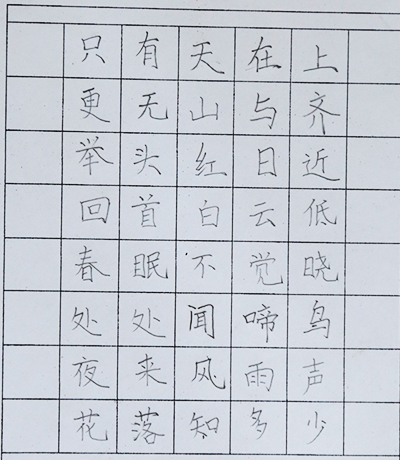 只有天在上
更无山与齐
举头红日近
回首白云低
春眠不觉晓
处处闻啼鸟
夜来风雨声
花落知多少